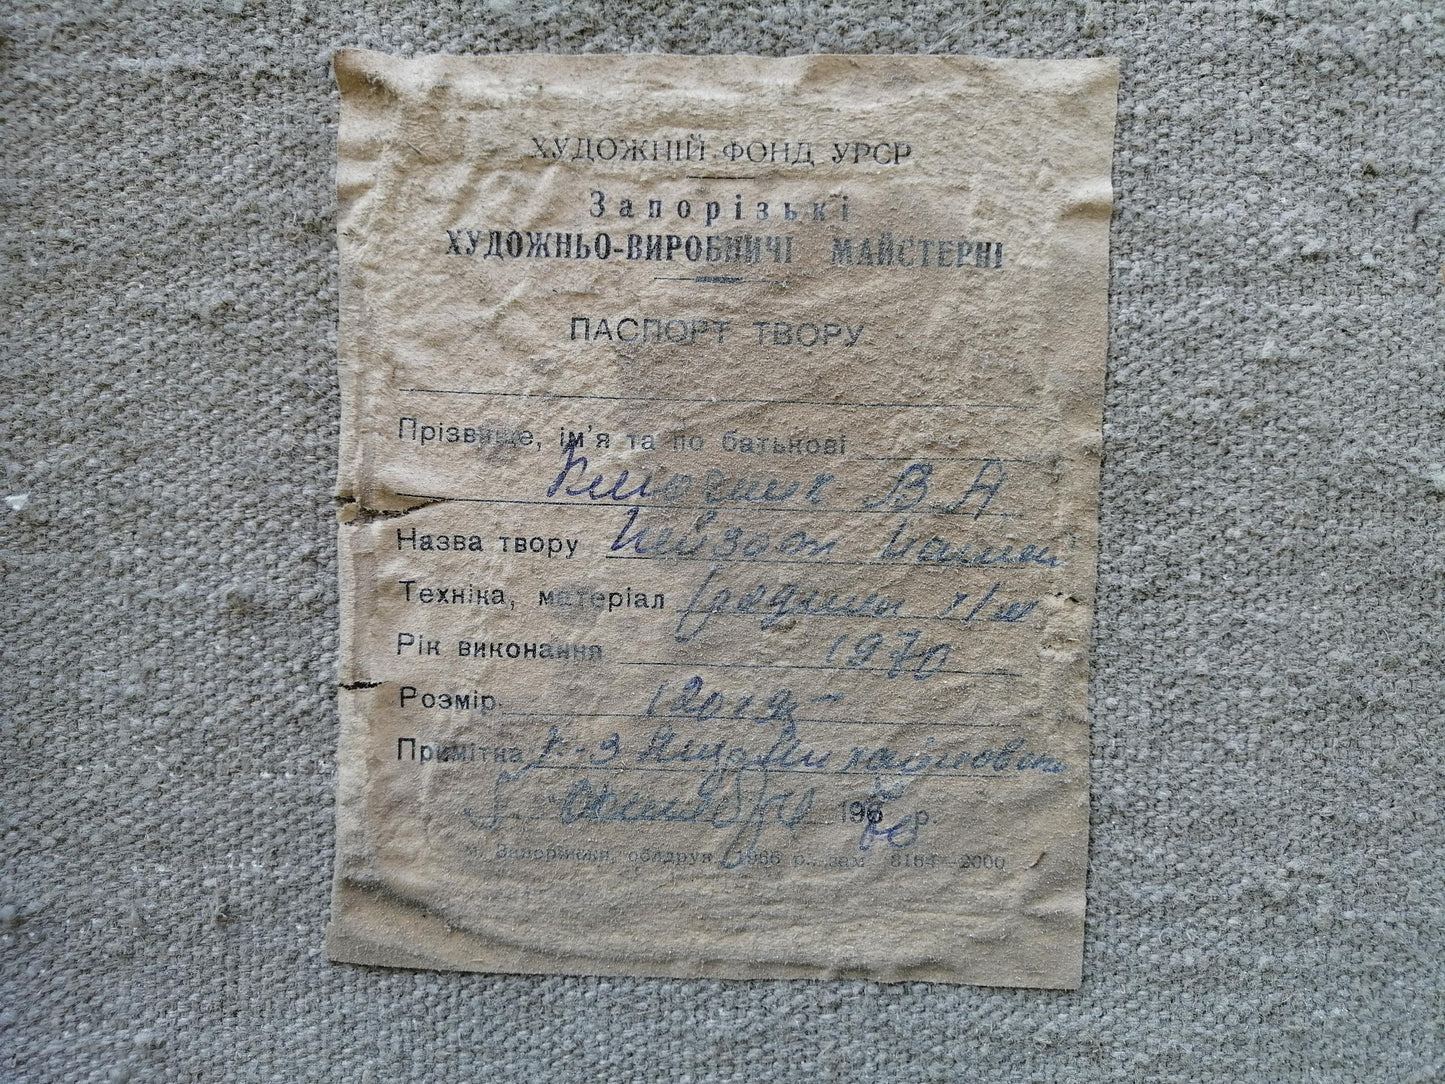 ХУДОЖНІЙ ФОНД УРСР
Запорізькі
ХУДОЖНЬО-ВИРОБНИЧІ МАЙСТЕРНІ
ПАСПОРТ ТВОРУ
Прізвище, ім'я та по батькові
Ключник В А
Назва твору Пейзаж
Техніка, матеріал х/м
Рік виконання 1970
Розмір
Примітна
196 р.
м. Запоріжжя, облдрук, 1966 р., зам. 8164—2000